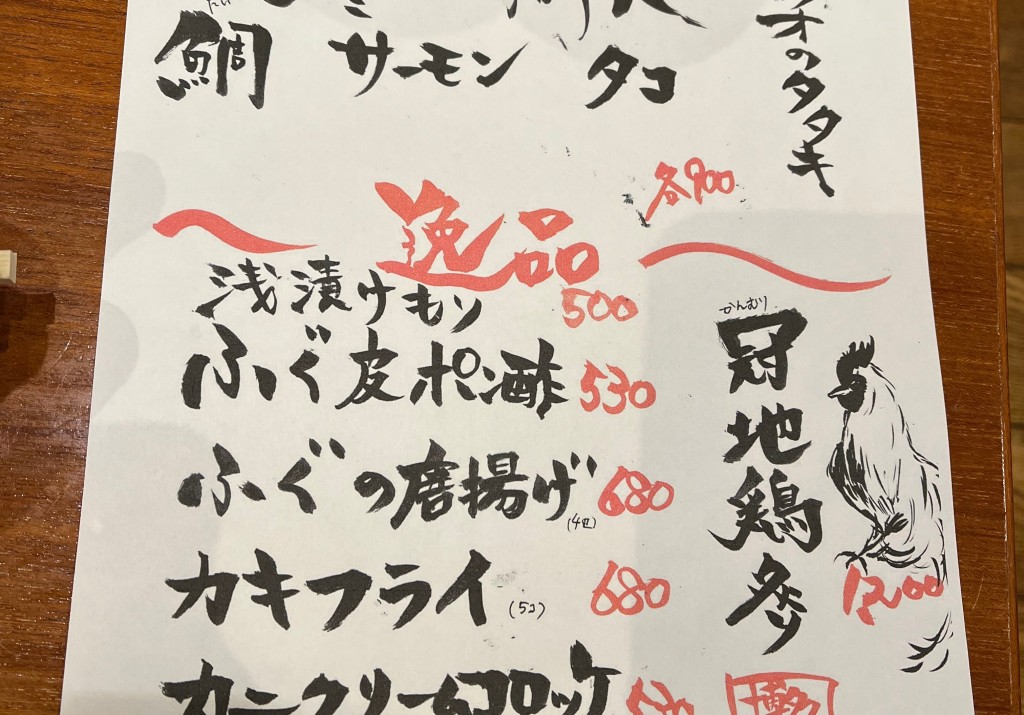 たい
鯛 サーモン タコ
オのタタキ
各900
逸品
浅漬けもり 500
ふぐ皮ポン酢 530
ふぐの唐揚げ (4ヶ) 680
カキフライ (5コ) 680
カニクリームコロッケ
かんむり
冠地鶏炙り
1200